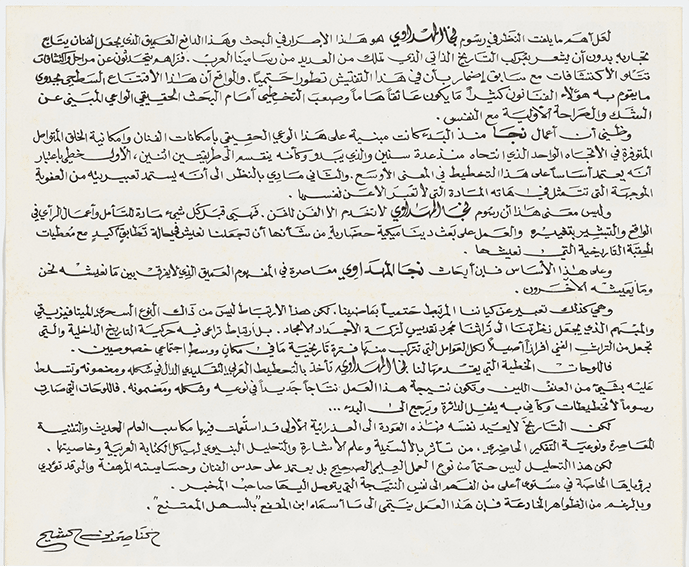 لعل أهم ما يلفت النظر في رسوم نجا المهداوي هو هذا الإصرار في البحث وهذا الدافع العميق الذي يجعل الفنان يتابع
تجاربه بدون أن يشعر بمركب التاريخ الذاتي الذي تملك من العديد من رسامينا العرب. فنراهم يتحدثون عن مراحل واكتشافات
تتلو الاكتشافات مع سابق إضمار بأن في هذا التفتيش تطورا حتميا. والواقع أن هذا الاقتناع السطحي بجدوى
ما يقوم به هؤلاء الفنانون كثيرا ما يكون عائقا هاما وصعب التخطي أمام البحث الحقيقي الواعي المبني عن
الشك والصراحة الأولية مع النفس.
وظني أن أعمال نجا منذ البدء كانت مبنية على هذا الوعي الحقيقي بإمكانات الفنان وإمكانية الخلق المتواصل
المتوفرة في الاتجاه الواحد الذي انتحاه منذ عدة سنين والذي يبدو وكأنه ينقسم الى طريقتين اثنتين، الأولى خطي باعتبار
أنه يعتمد أساسا على هذا التخطيط في المعنى الأوسع. والثاني مادي بالنظر الى أنه يستمد تعبيريته من العفوية
الموجهة التي تتمثل في هاته المادة التي لا تعبر إلا عن نفسها.
وليس معنى هذا أن رسوم نجا المهداوي لا تقدم الا الفن للفن. فهي قبل كل شيء مادة للتأمل وأعمال الرأي في
الواقع والتبشير بتغييره والعمل على بعث ديناميكية حضارية من شأنها أن تجعلنا نعيش في حالة تطابق أكيد مع معطيات
الحقبة التاريخية التي نعيشها.
وعلى هذا الأساس فإن أبحاث نجا المهداوي معاصرة في المفهوم العميق الذي لا يفرق بين ما نعيشه نحن
وما يعيشه الآخرون.
وهي كذلك تعبير عن كياننا المرتبط حتميا بماضينا. لكن هذا الارتباط ليس من ذاك النوع السحري الميتافيزيقي
والمبهم الذي يجعل نظرتنا الى تراثنا مجرد تقديس لتركة الأجداد الأمجاد. بل ارتباط تراعى فيه حركية التاريخ الداخلية والتي
تجعل من التراث الفني افرازا أصيلا لكل العوامل التي تتركب منها فترة تاريخية ما في مكان ووسط اجتماعي خصوصيين.
فاللوحات الخطية التي يقدمها لنا نجا المهداوي تأخذ بالتخطيط العربي التقليدي الدال في شكله ومضمونه وتسلط
عليه شيئا من العنف اللين وتكون نتيجة هذا العمل نتاجا جديدا في نوعه وشكله ومضمونه. فاللوحات التي صارت
رسوما لا تخطيطات وكأني به يقفل الدائرة ويرجع الى البدء...
لكن التاريخ لا يعيد نفسه فهذه العودة الى العذرائية الأولى قد استعملت فيها مكاسب العلم الحديث والتقنية
المعاصرة ونوعية التفكير الحاضري، من تأثر بالألسنية وعلم الاشارة والتحليل البنيوي لهياكل الكتابة العربية وخاصيتها.
لكن هذا التحليل ليس حتما من نوع العمل العلمي الصحيح بل يعتمد على حدس الفنان وحساسيته المرهفة والتي قد تؤدي
برؤياها الخاصة في مستوى أعلى من الفهم الى نفس النتيجة التي يتوصل اليها صاحب المخبر.
وبالرغم من الظواهر الخادعة فإن هذا العمل ينتمي الى ما أسماه ابن المقفع "بالسهل الممتنع".
الناصر بن الشيخ